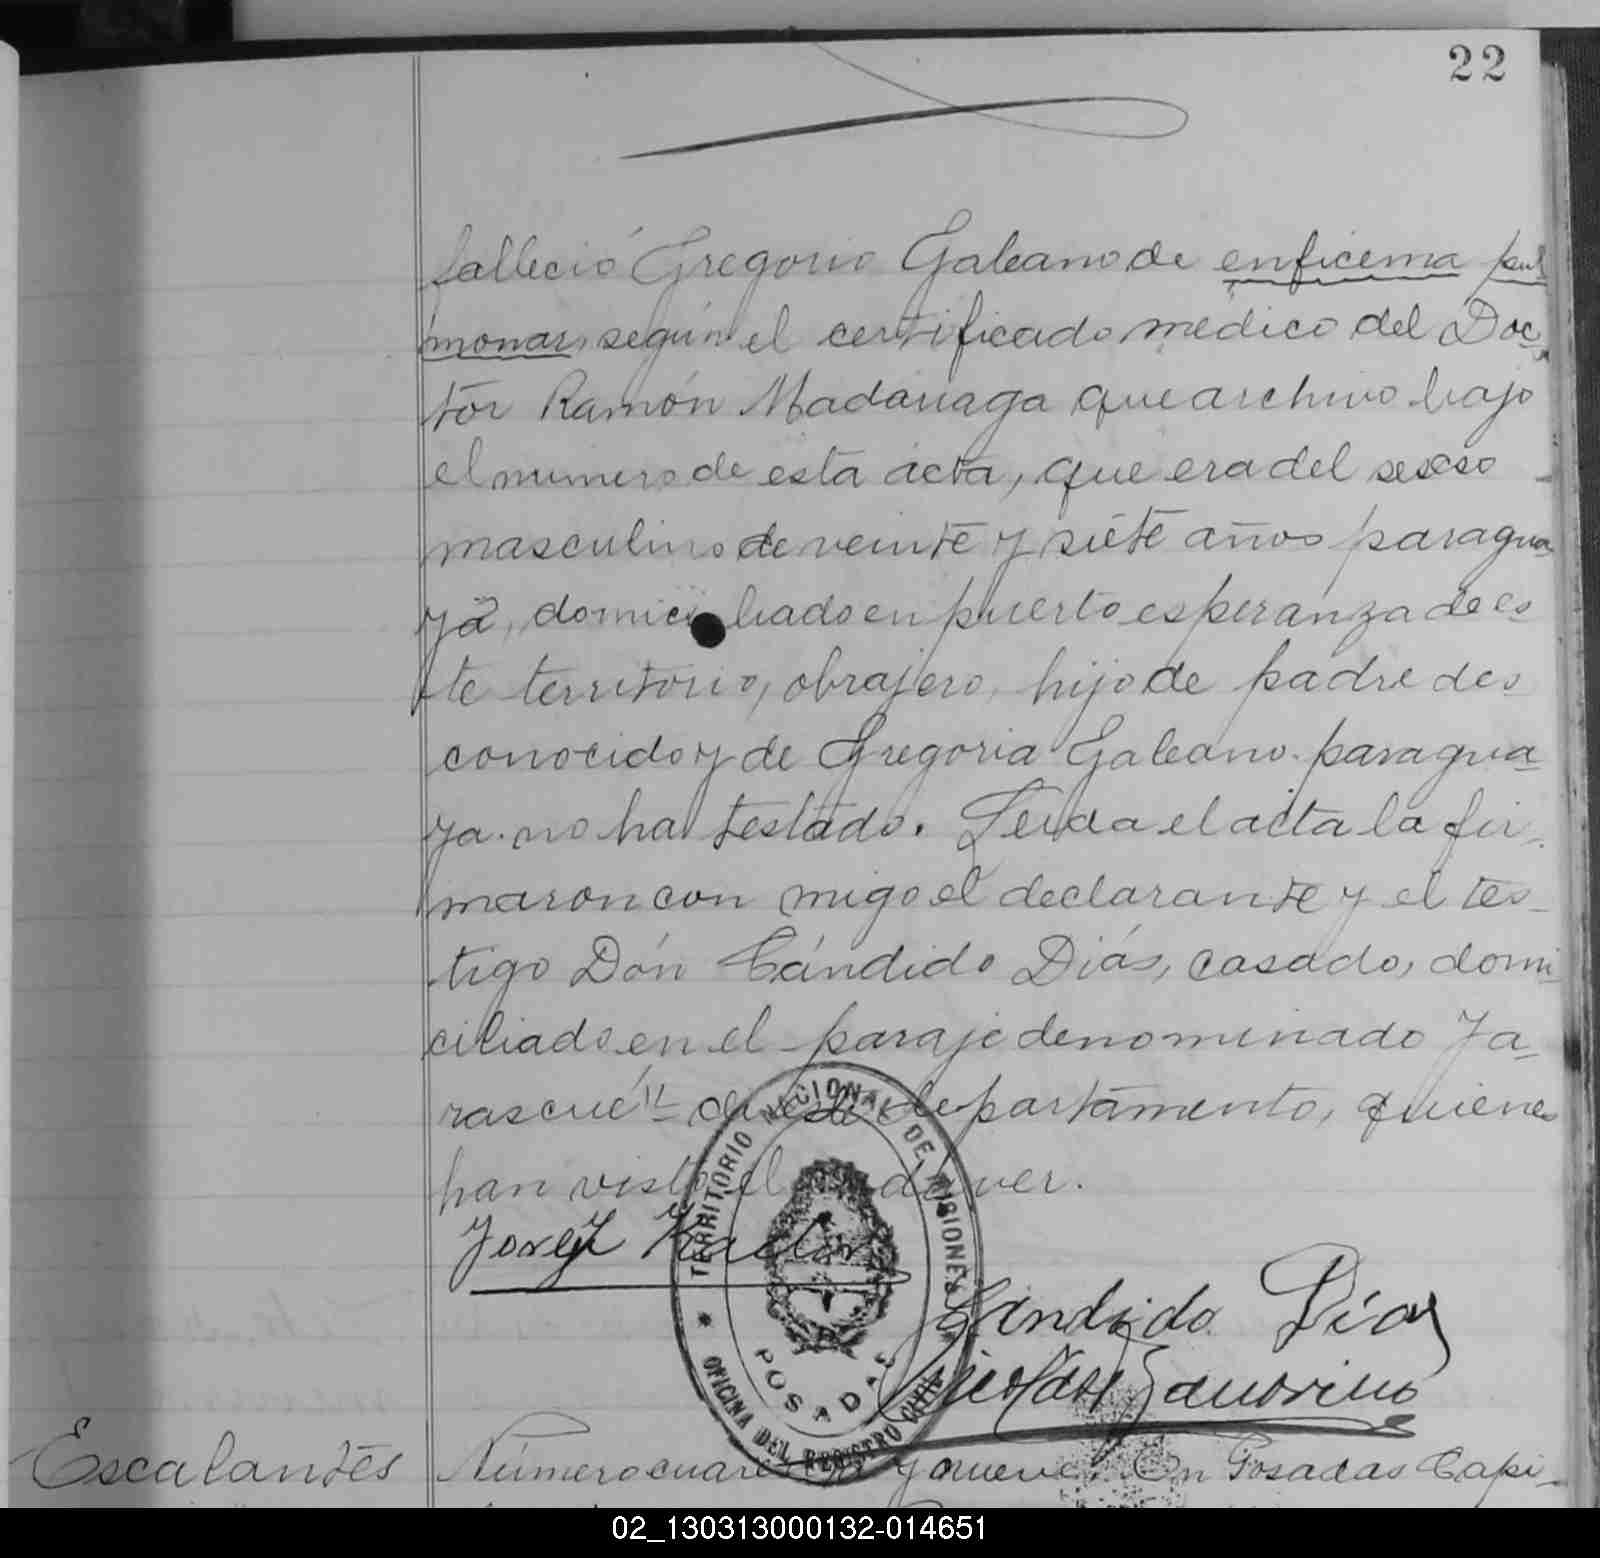 22
falleció Gregorio Galeano de enficema pul
monar, según el certificado medico del Doc-
tor Ramón Madariaga que archivo bajo
el numero de esta acta, que era del sexso
masculino de veinte y siete años paragua-
yo, domiciliado en puerto esperanza de es
te territorio, obrajero, hijo de padre des
conocido y de Gregoria Galeano. paragua-
ya. no ha testado. Leida el acta la fir-
maron con migo el declarante y el tes-
tigo Dón Cándido Diás, casado, domi
ciliado en el paraje denominado Ya-
rascué" de este departamento, quienes
han visto el cadáver.
TERRITORIO NACIONAL DE MISIONES
POSADAS
OFICINA DEL REGISTRO CIVIL
Cándido Días
Escalantes
Número cuarenta y nueve. En Posadas Capi-
02_130313000132-014651